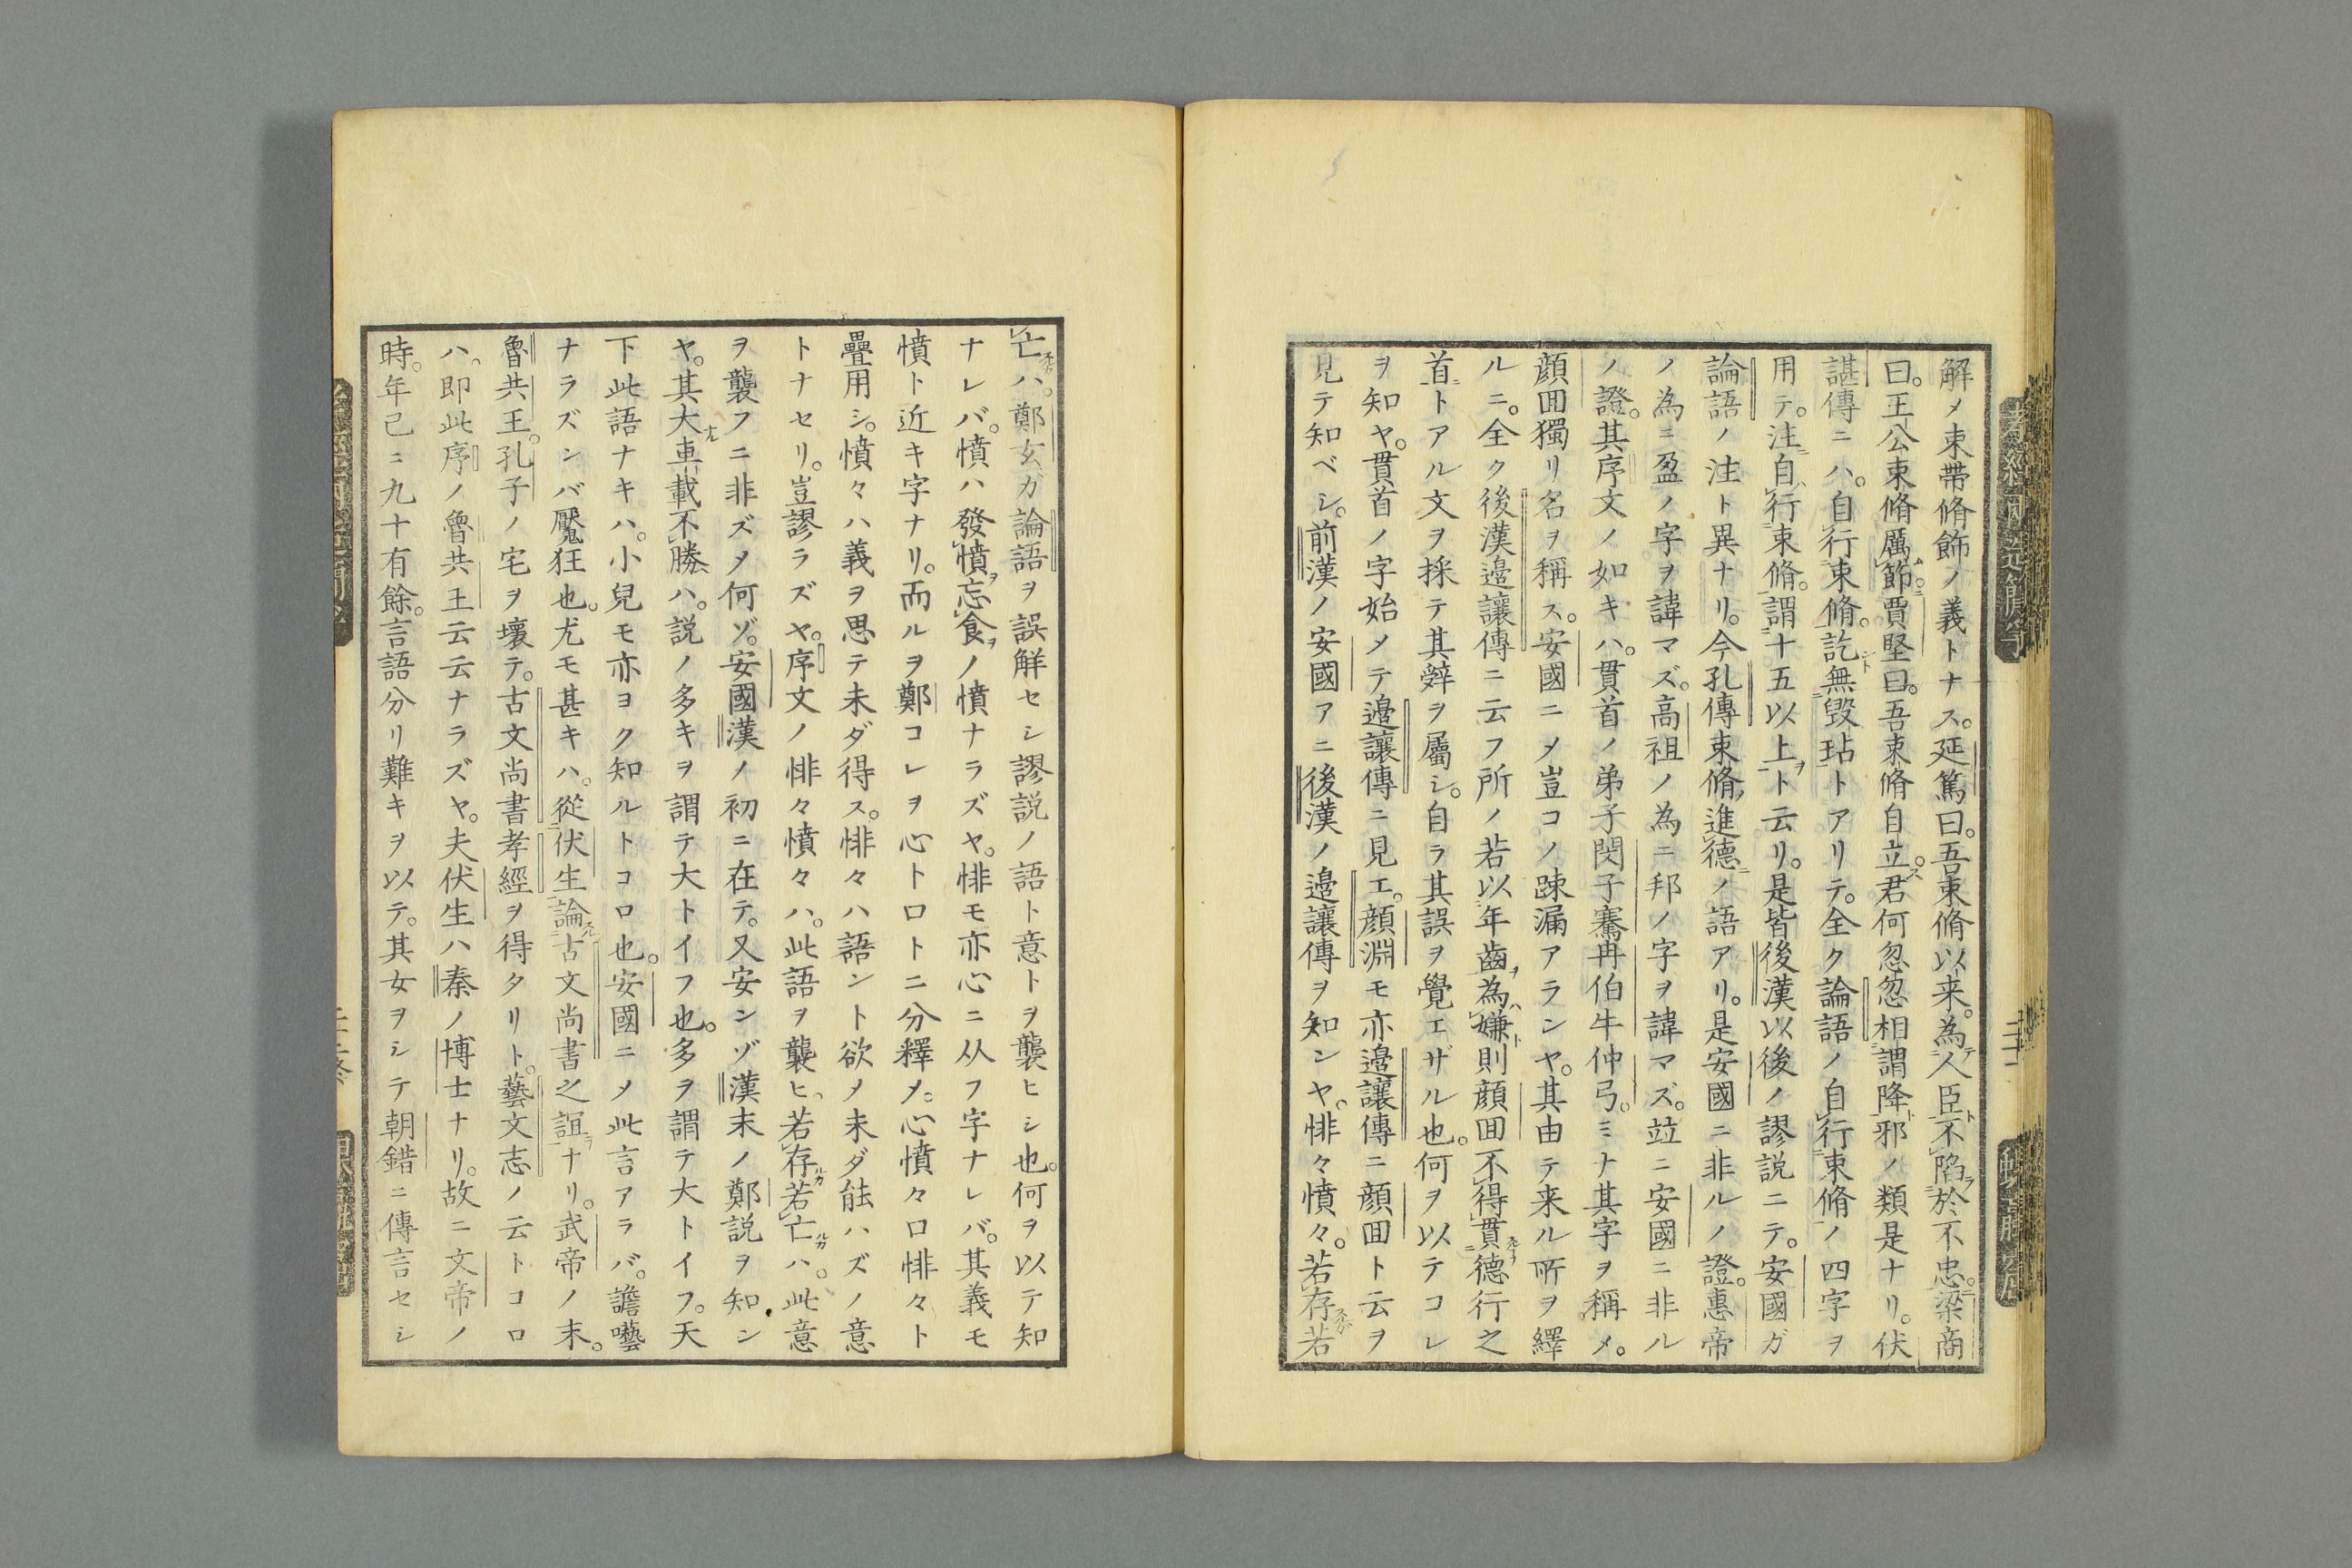 解メ束帶脩飾ノ義トナス。延篤曰。吾束脩以来。為人臣不陷於不忠。梁商
曰。王公束脩厲節。賈堅曰。吾束脩自立。君何忽忽相謂降邪ノ類是ナリ。伏
諶傳ニハ。自行束脩。訖無毀玷トアリテ。全ク論語ノ自行束脩ノ四字ヲ
用テ。注自行束脩。謂十五以上ト云リ。是皆後漢以後ノ謬説ニテ。安國ガ
論語ノ注ト異ナリ。今孔傳束脩進德ノ語アリ。是安國ニ非ルノ證。惠帝
ノ為ニ盈ノ字ヲ諱マズ。高祖ノ為ニ邦ノ字ヲ諱マズ。竝ニ安國ニ非ル
ノ證。其序文ノ如キハ。貫首ノ弟子閔子騫冉伯牛仲弓。ミナ其字ヲ稱メ。
顔回獨リ名ヲ稱ス。安國ニメ豈コノ疎漏アランヤ。其由テ来ル所ヲ繹
ルニ。全ク後漢邉讓傳ニ云フ所ノ若以年齒為嫌則顔回不得貫德行之
首トアル文ヲ採テ其辤ヲ屬シ。自ラ其誤ヲ覺エザル也。何ヲ以テコレ
ヲ知ヤ。貫首ノ字始メテ邉讓傳ニ見エ。顔淵モ亦邉讓傳ニ顔回ト云ヲ
見テ知ベシ。前漢ノ安國アニ後漢ノ邉讓傳ヲ知ンヤ。悱々憤々。若存若
亡ハ。鄭玄ガ論語ヲ誤解セシ謬説ノ語ト意トヲ襲ヒシ也。何ヲ以テ知
ナレバ。憤ハ發憤忘食ノ憤ナラズヤ。悱モ亦心ニ从フ字ナレバ。其義モ
憤ト近キ字ナリ。而ルヲ鄭コレヲ心ト口トニ分釋メ。心憤々口悱々ト
疊用シ。憤々ハ義ヲ思テ未ダ得ス。悱々ハ語ント欲メ未ダ能ハズノ意
トナセリ。豈謬ラズヤ。序文ノ悱々憤々ハ。此語ヲ襲ヒ。若存若亡ハ。此意
ヲ襲フニ非ズメ何ゾ。安國漢ノ初ニ在テ。又安ンゾ漢末ノ鄭説ヲ知ン
ヤ。其大車載不勝ハ。説ノ多キヲ謂テ大トイフ也。多ヲ謂テ大トイフ。天
下此語ナキハ。小兒モ亦ヨク知ルトコロ也。安國ニメ此言アラバ。譫囈
ナラズンバ魘狂也。尤モ甚キハ。從伏生論古文尚書之誼ナリ。武帝ノ末。
魯共王。孔子ノ宅ヲ壊テ。古文尚書孝經ヲ得タリト。藝文志ノ云トコロ
ハ。即此序ノ魯共王云云ナラズヤ。夫伏生ハ秦ノ博士ナリ。故ニ文帝ノ
時。年已ニ九十有餘。言語分リ難キヲ以テ。其女ヲシテ朝錯ニ傳言セシ